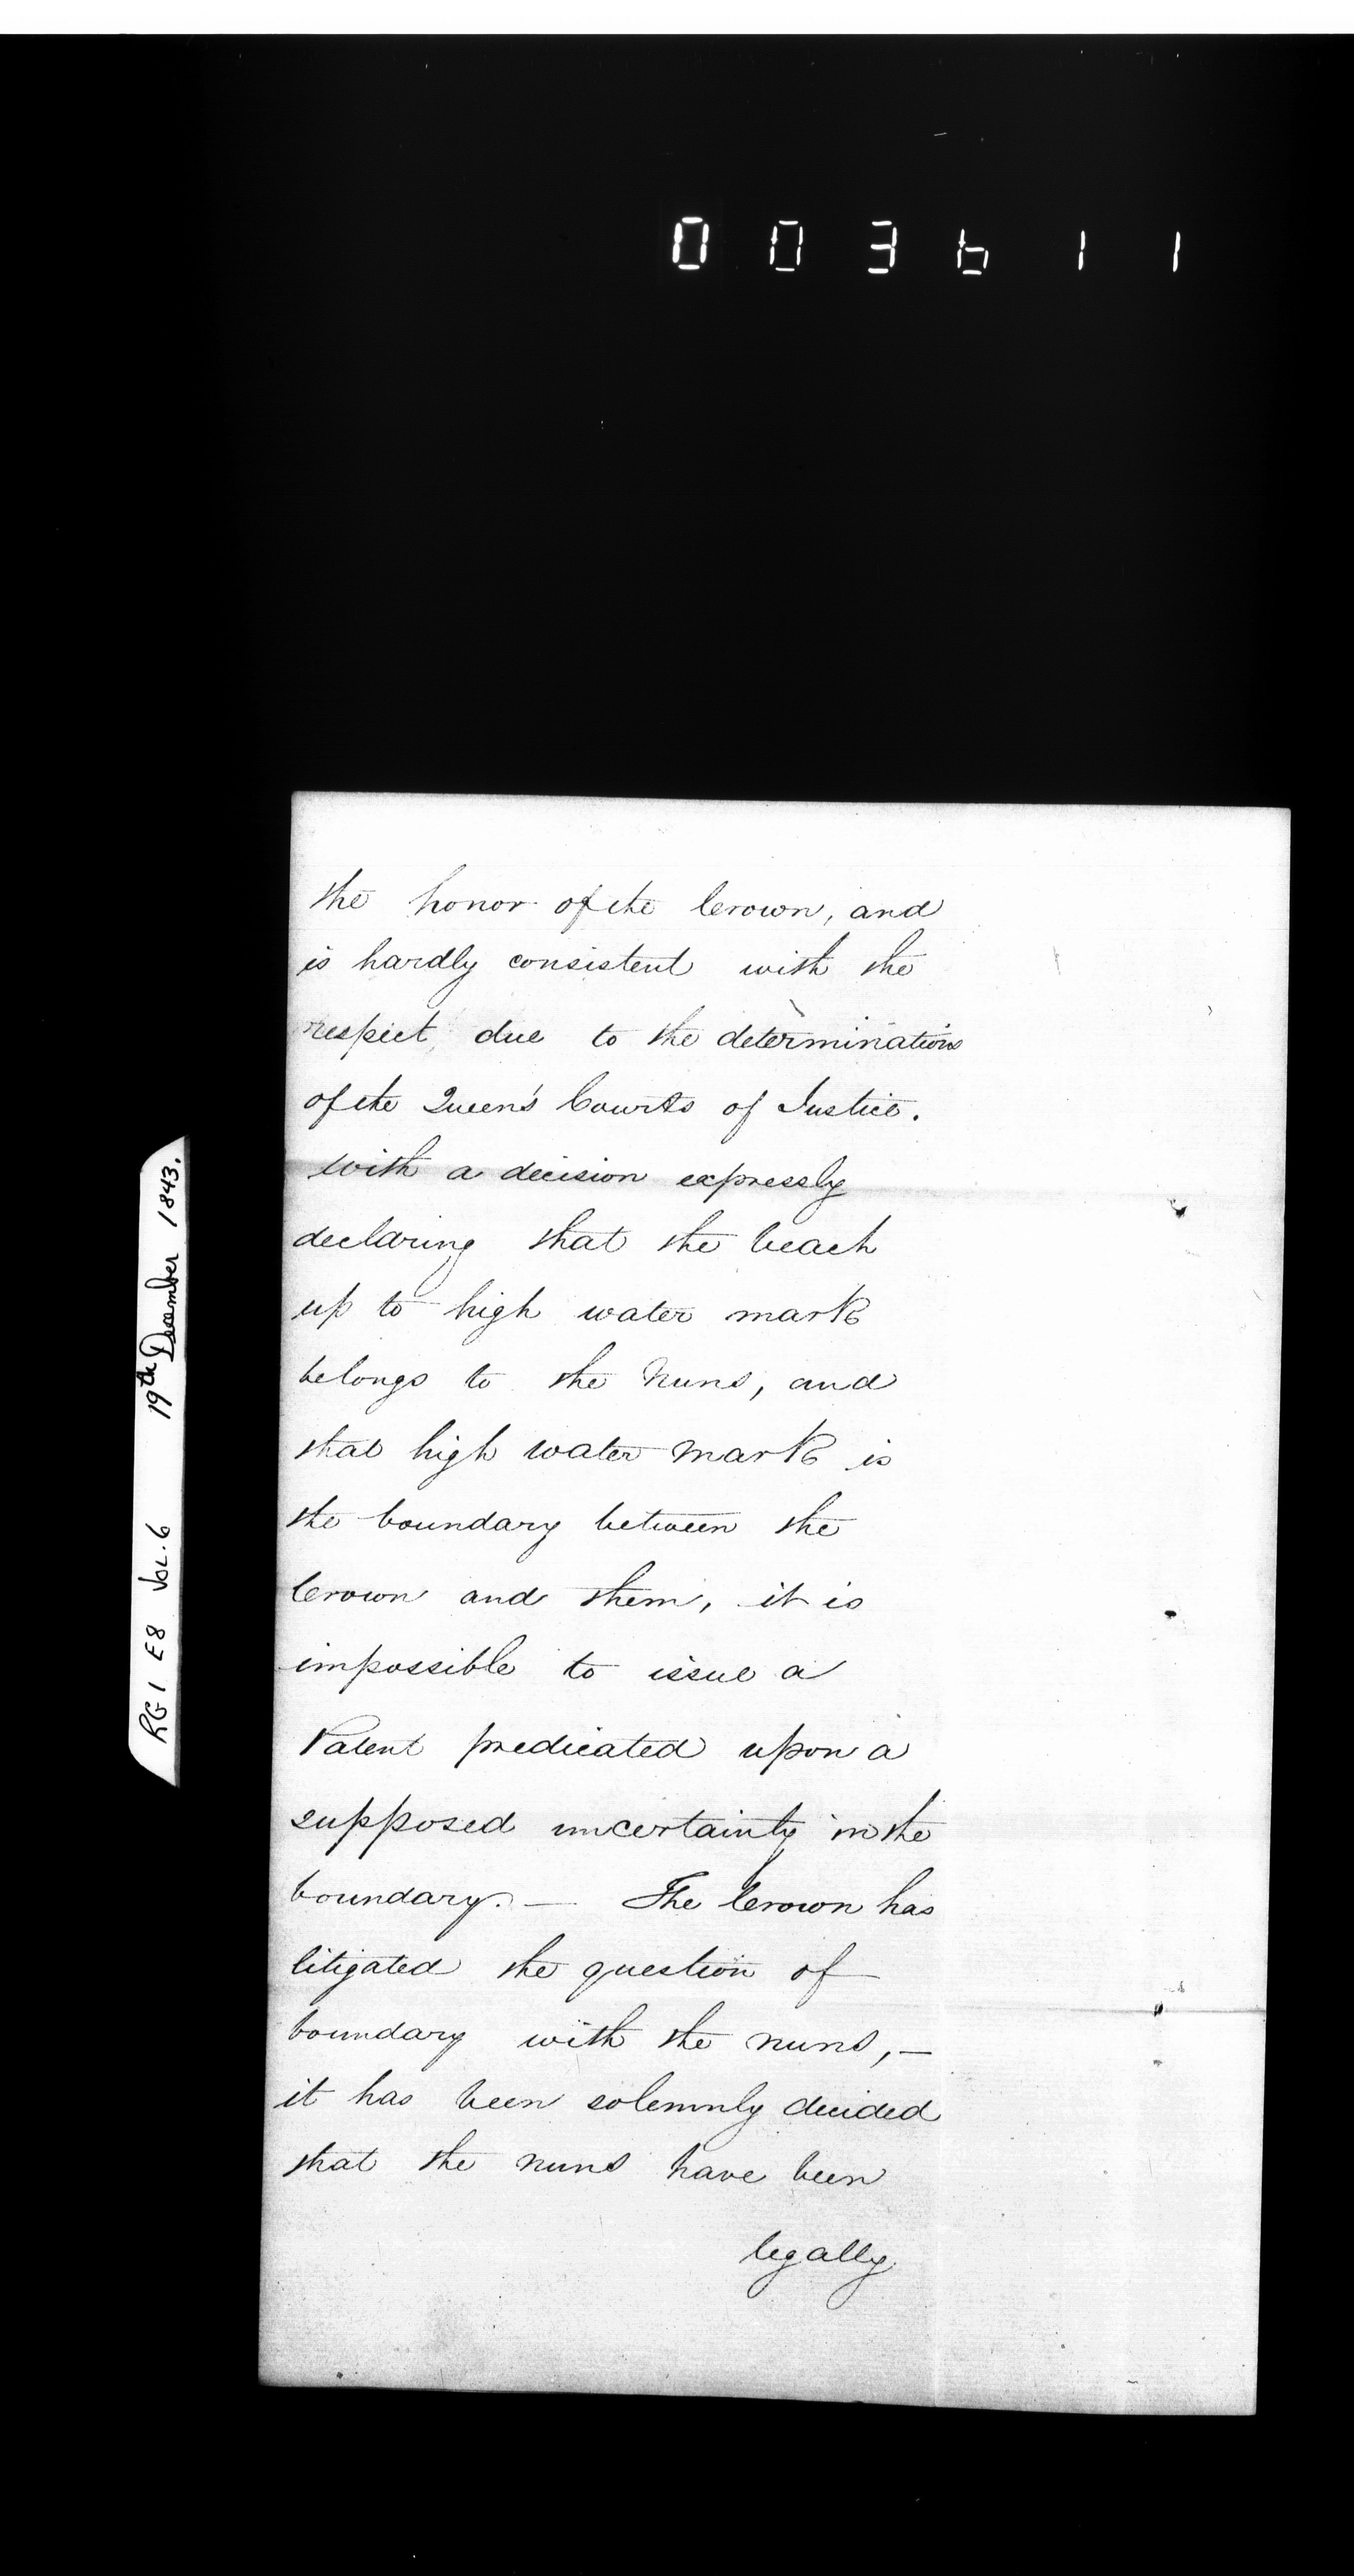 003611
the honor of the Crown, and
is hardly consistent with the
respect due to the determination
of the Queen's Courts of Justice.
with a decision expressly
declaring that the beach
up to high water mark
belongs to the Nuns, and
that high water mark is
the boundary between the
Crown and them, it is
impossible to issue a
Patent predicated upon a
supposed uncertainty in the
boundary. — The Crown has
litigated the question of
boundary with the nuns, —
it has been solemnly decided
that the nuns have been
legally
RG1 E8 VOL.6 19th December 1843.